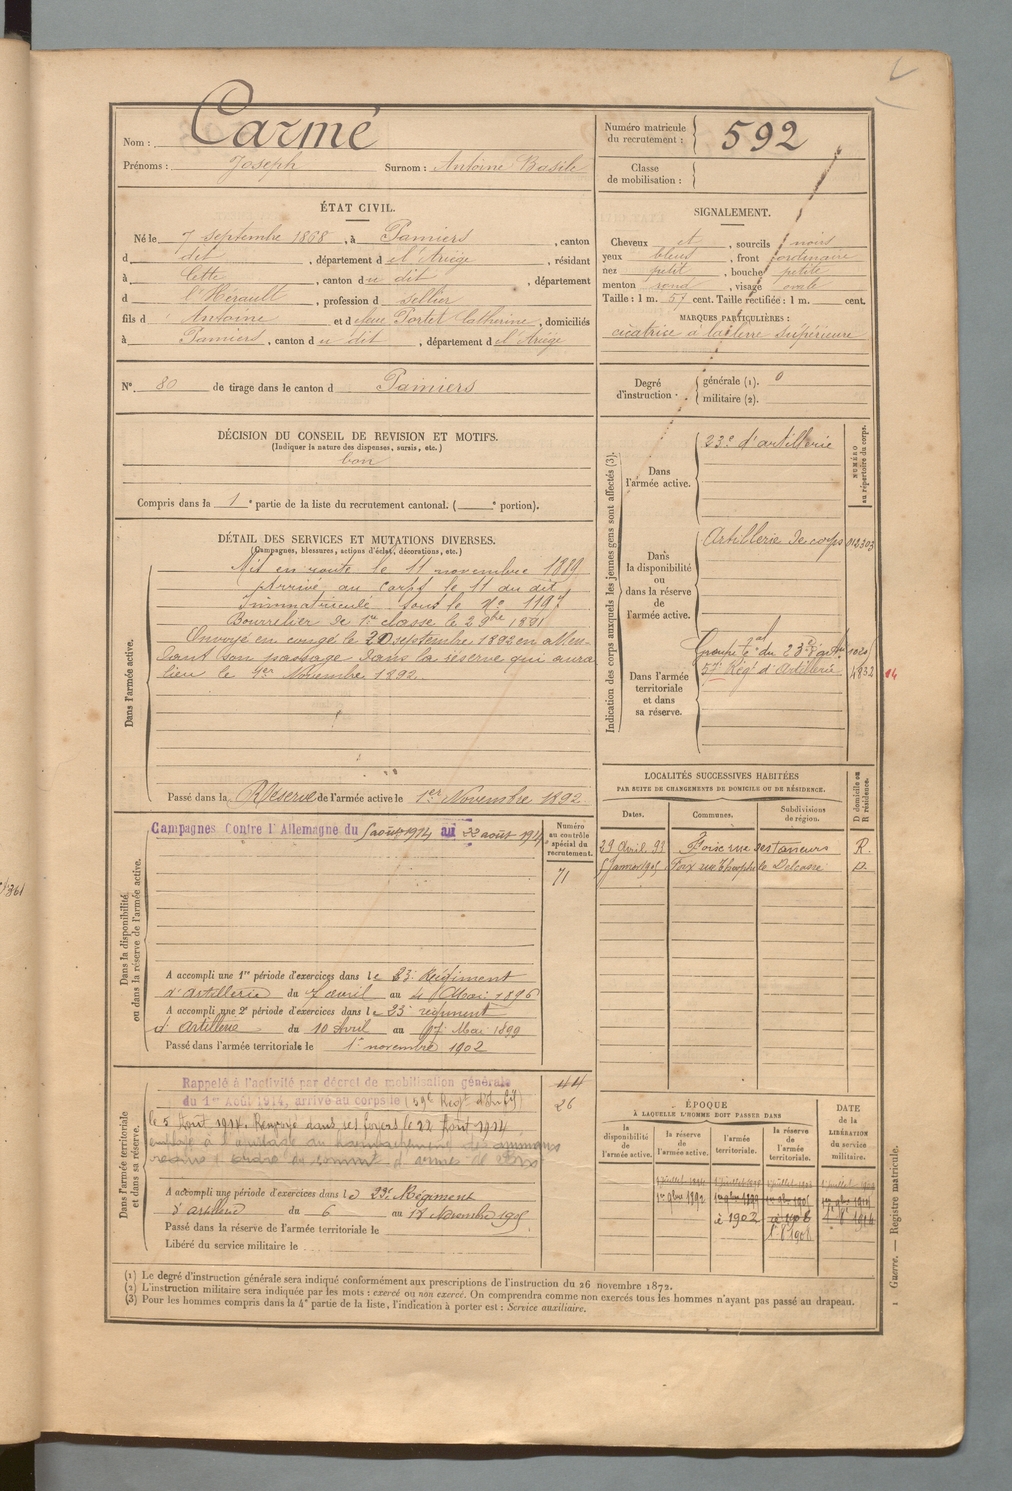 Nom : Carmé
Prénoms : Joseph Surnom : Antoine Basile
ÉTAT CIVIL.
Né le 7 septembre 1868, à Pamiers, canton
d dit, département d el'Ariège, résidant
à Cette, canton du dit, département
d l'Hérault, profession d sellier
fils d Antoine et d Porter Catherine, domiciliés
à Pamiers, canton du dit, département d el'Ariège
N° 80 de tirage dans le canton d Pamiers
DÉCISION DU CONSEIL DE REVISION ET MOTIFS.
(Indiquer la nature des dispenses, sursis, etc.)
bon
Compris dans la 1e partie de la liste du recrutement cantonal. ( e portion).
DÉTAIL DES SERVICES ET MUTATIONS DIVERSES.
(Campagnes, blessures, actions d'éclat, décorations, etc.)
Dans l'armée active.
Mis en route le 11 novembre 1889
Arrivé au corps le 11 du dit
Immatriculé sous le No 1197
Bourrelier de 1re classe le 29 bre 1891
Envoyé en congé le 20 septembre 1892 en atten-
dant son passage dans la réserve qui aura
lieu le 1er Novembre 1892.
Passé dans la Réserve de l'armée active le 1er Novembre 1892
Dans la disponibilité
ou dans la réserve de l'armée active.
Campagnes Contre l'Allemagne du 5 août 1914 au 22 août 1914
Numéro
au contrôle
spécial du
recrutement.
71
A accompli une 1re période d'exercices dans le 23e Régiment
d'artillerie du 7 avril au 4 Mai 1896
A accompli une 2e période d'exercices dans le 23 régiment
d'artillerie du 10 Avril au 7 Mai 1899
Passé dans l'armée territoriale le 1er novembre 1902
Dans l'armée territoriale
et dans sa réserve.
Rappelé à l'activité par décret de mobilisation générale
du 1er Août 1914, arrivé au corps le
44
26
le 5 Août 1914. Renvoyé dans ses foyers le 22 Août 1914
A accompli une période d'exercices dans le 23e Régiment
d'artillerie du 6 au Novembre
Passé dans la réserve de l'armée territoriale le
Libéré du service militaire le
Numéro matricule
du recrutement : 592
Classe
de mobilisation :
SIGNALEMENT.
Cheveux et, sourcils noirs
yeux bleus, front ordinaire
nez petit, bouche petite
menton rond, visage ovale
Taille : 1 m. 57 cent. Taille rectifiée : 1 m. cent.
MARQUES PARTICULIÈRES :
cicatrice à la lèvre supérieure
Degré
d'instruction.
générale (1). 0
militaire (2).
Indication des corps auxquels les jeunes gens sont affectés (3).
NUMÉRO
au répertoire du corps.
Dans
l'armée active.
23e d'artillerie
Dans
la disponibilité
ou
dans la réserve
de
l'armée active.
Artillerie de corps
Dans l'armée
territoriale
et dans
sa réserve.
Groupe du 23e
Régt d'Artillerie
LOCALITÉS SUCCESSIVES HABITÉES
PAR SUITE DE CHANGEMENTS DE DOMICILE OU DE RÉSIDENCE.
D domicile ou
R résidence.
Dates. Communes. Subdivisions
de région.
29 Avril 93 Foix rue des tanneurs R.
Janvier Foix rue Théophile Delcassé D.
ÉPOQUE
À LAQUELLE L'HOMME DOIT PASSER DANS
DATE
de la
LIBÉRATION
du service
militaire.
la
disponibilité
de
l'armée active.
la réserve
de
l'armée active.
l'armée
territoriale.
la réserve
de
l'armée
territoriale.
1er 9bre 1892
à 1902
(1) Le degré d'instruction générale sera indiqué conformément aux prescriptions de l'instruction du 26 novembre 1872.
(2) L'instruction militaire sera indiquée par les mots : exercé ou non exercé. On comprendra comme non exercés tous les hommes n'ayant pas passé au drapeau.
(3) Pour les hommes compris dans la 4e partie de la liste, l'indication à porter est : Service auxiliaire.
1 Guerre. — Registre matricule.